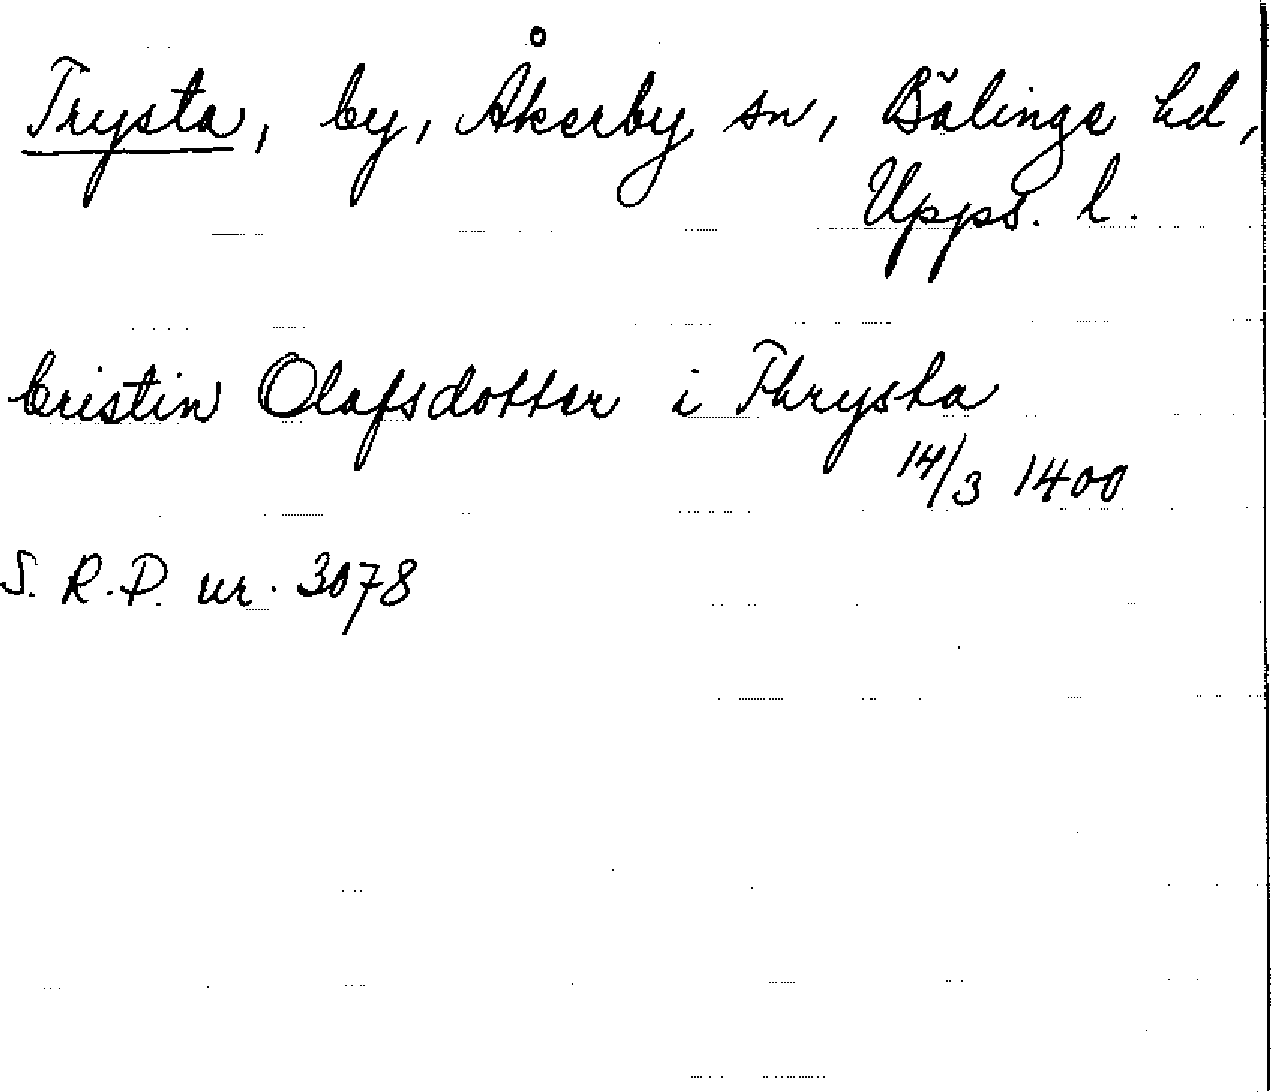 Trysta, by, Åkerby sn, Bälinge hd,
Upps. l.
Cristin Olafsdotter i Thrysta
14/3 1400
S. R. P. nr. 3078